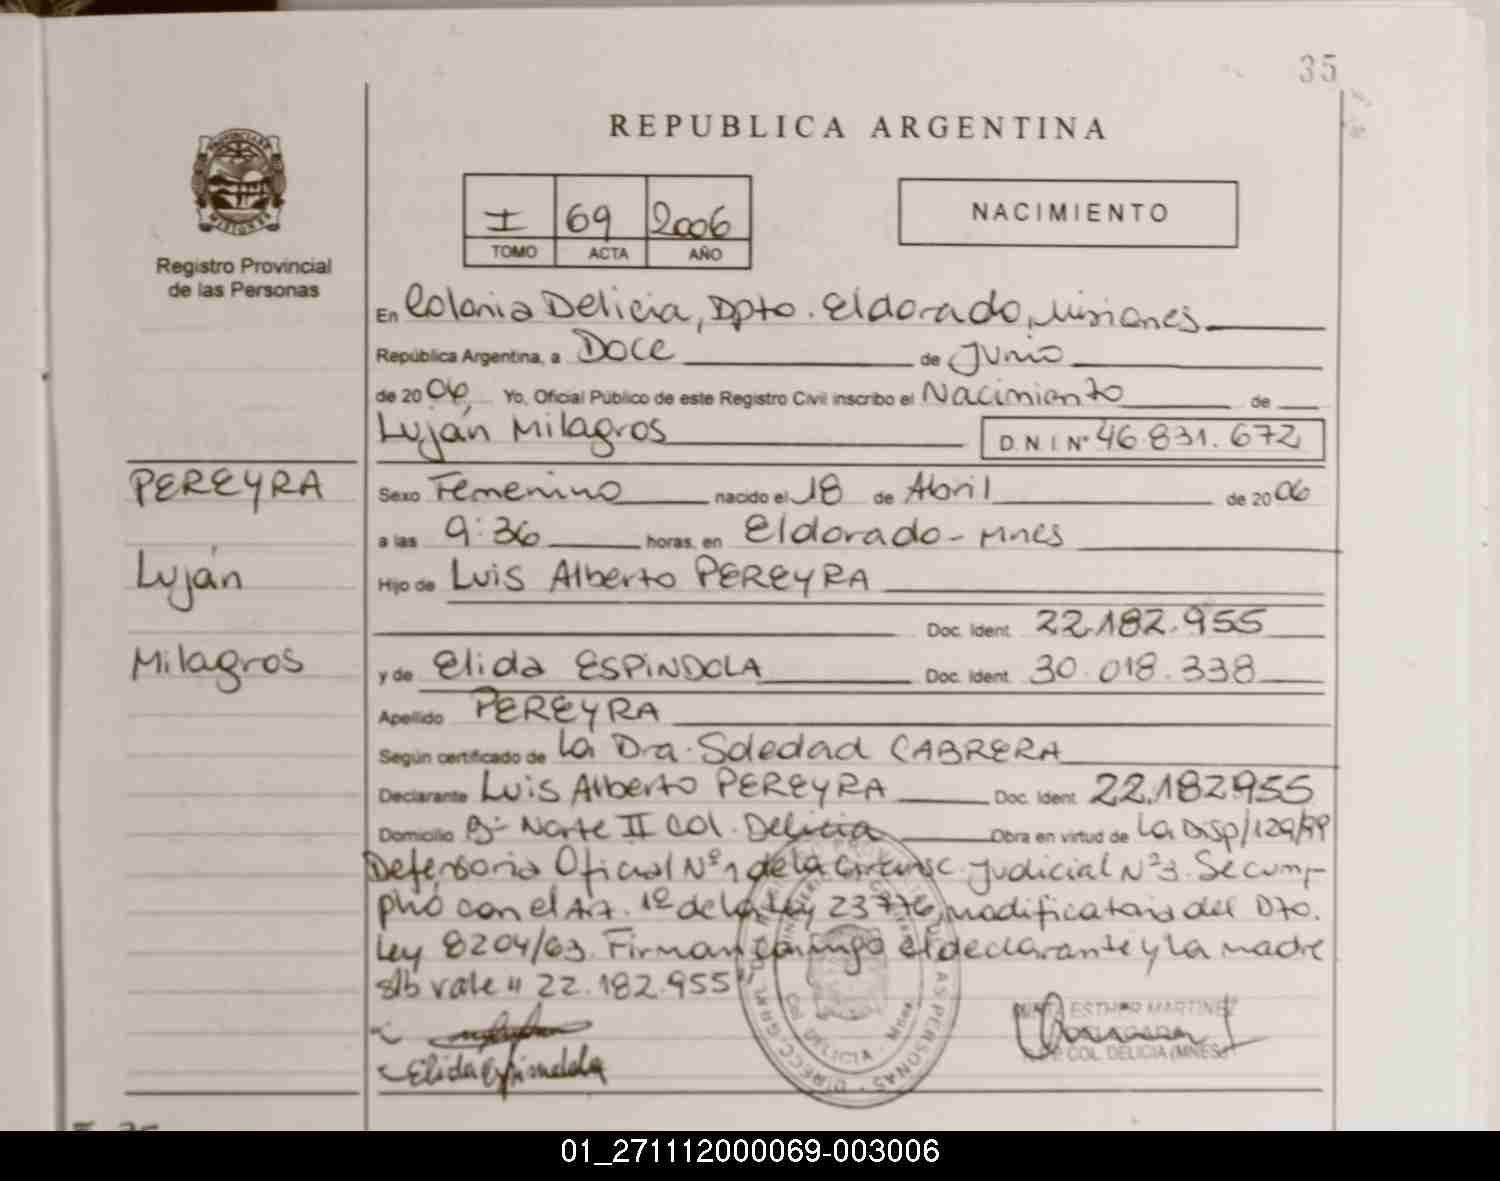 35
REPUBLICA ARGENTINA
I 69 2006
TOMO ACTA AÑO
NACIMIENTO
Registro Provincial
de las Personas
En Colonia Delicia, Dpto. Eldorado, Misiones
República Argentina, a Doce de Junio
de 2006, Yo, Oficial Público de este Registro Civil inscribo el Nacimiento de
Luján Milagros D.N.I. Nº 46.831.672
PEREYRA
Luján
Milagros
Sexo Femenino nacido el 18 de Abril de 2006
a las 9:36 horas, en Eldorado - Mnes
Hijo de Luis Alberto PEREYRA
Doc. Ident. 22.182.955
y de Elida ESPINDOLA Doc. Ident. 30.018.338
Apellido PEREYRA
Según certificado de La Dra. Soledad CABRERA
Declarante Luis Alberto PEREYRA Doc. Ident. 22.182.955
Domicilio Bº Norte II Col. Delicia Obra en virtud de La Disp/129/99
Defensoria Oficial Nº 1 de la Circunsc. Judicial Nº 3. Se cum-
plió con el Art. 1º de la Ley 23776, modificatoria del Dto.
Ley 8204/63. Firman conmigo el declarante y La madre
s/b vale " 22.182.955"
Elida Espindola
ESTHER MARTINEZ
COL. DELICIA (MNES)
COL. DELICIA Mnes.
01_271112000069-003006